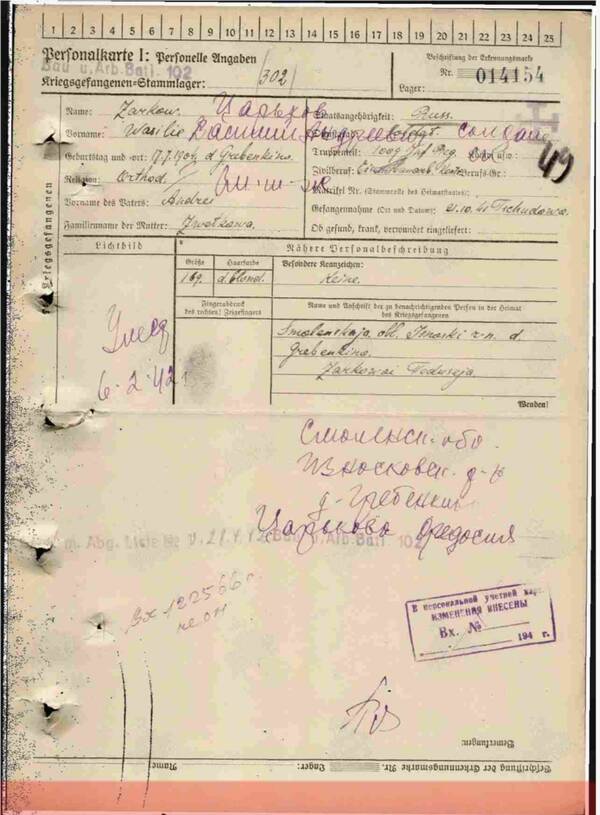 1 2 3 4 5 6 7 8 9 10 11 12 13 14 15 16 17 18 19 20 21 22 23 24 25
Personalkarte I: Personelle Angaben
Bau u. Arb. Batl. 102
Kriegsgefangenen-Stammlager: /302/
Beschriftung der Erkennungsmarke
Nr. 014154
Lager:
Name: Zarkow. Царьков
Vorname: Wasilie Василий
Geburtstag und -ort: d. Grebenkino.
Religion: Orthod.
Vorname des Vaters: Andrei
Familienname der Mutter: Zwetkowa.
Staatsangehörigkeit: Russ.
солдат
Truppenteil: 1009 Inf. Reg. Komp. usw.:
49
Zivilberuf: Berufs-Gr.:
Matrikel Nr. (Stammrolle des Heimatstaates):
Gefangennahme (Ort und Datum): 21.10.41 Tschudowa.
Ob gesund, krank, verwundet eingeliefert:
Kriegsgefangenen
Lichtbild
Nähere Personalbeschreibung
Größe Haarfarbe
169. d. blond.
Besondere Kennzeichen:
Keine.
Fingerabdruck
des rechten! Zeigefingers
Name und Anschrift der zu benachrichtigenden Person in der Heimat
des Kriegsgefangenen
Smolenskaja obl.
Grebenkino.
Zarkowai
Wenden!
6-2-42
Смоленск. обл.
Износковск. р-н
д-Гребенки
Царькова Федосия
m. Abg. Liste Nr. v. 21.4.42 Bau u. Arb. Batl. 102
Вх 122566 г.
В персональной учетной кар.
ИЗМЕНЕНИЯ ВНЕСЕНЫ
Вх. №
194 г.
Bemerkungen:
Beschriftung der Erkennungsmarke Nr. Lager: Name: